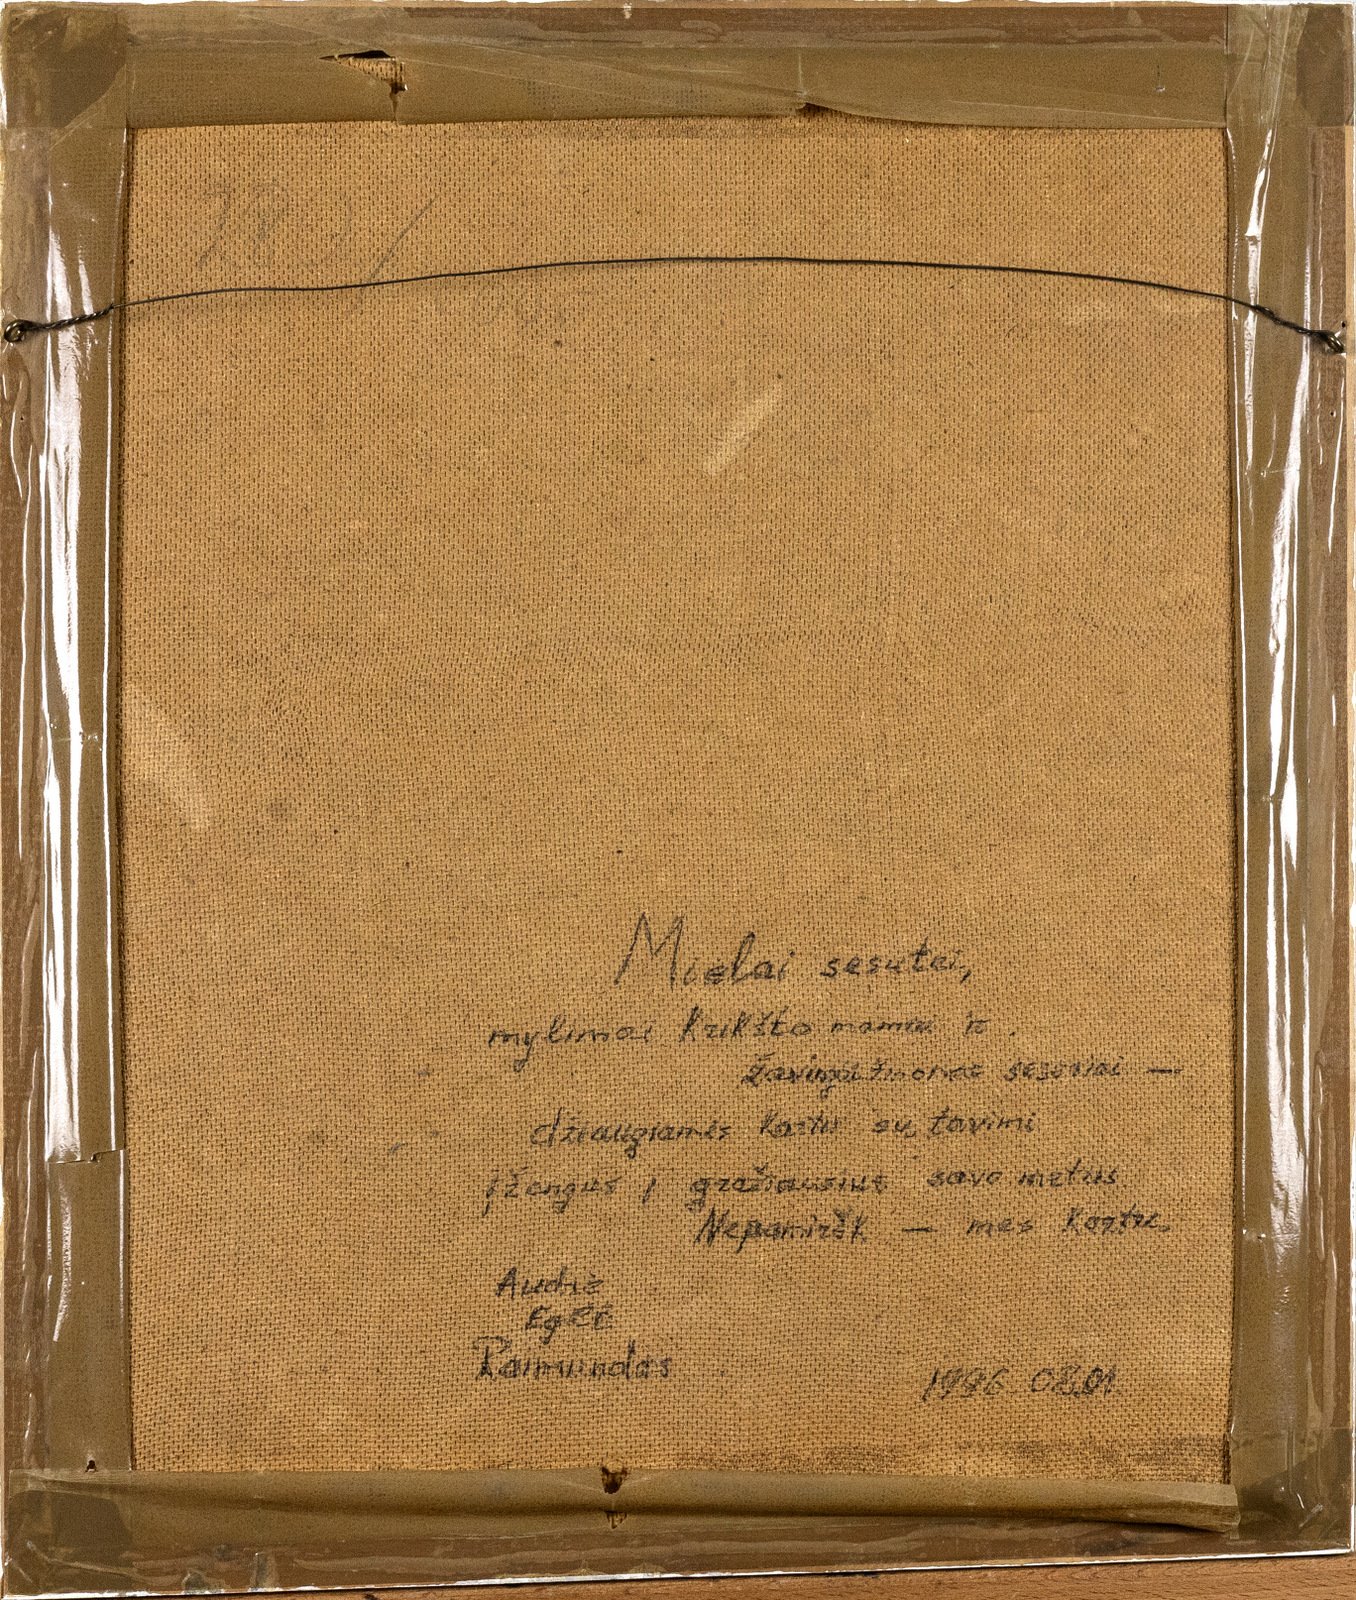 Mielai sesutei,
mylimai krikšto mamai ir
žavingai žmonos seseriai —
džiaugiamės kartu su tavimi
įžengus į gražiausius savo metus.
Nepamiršk — mes kartu.
Audrė
Eglė
Raimundas
1996 08.01